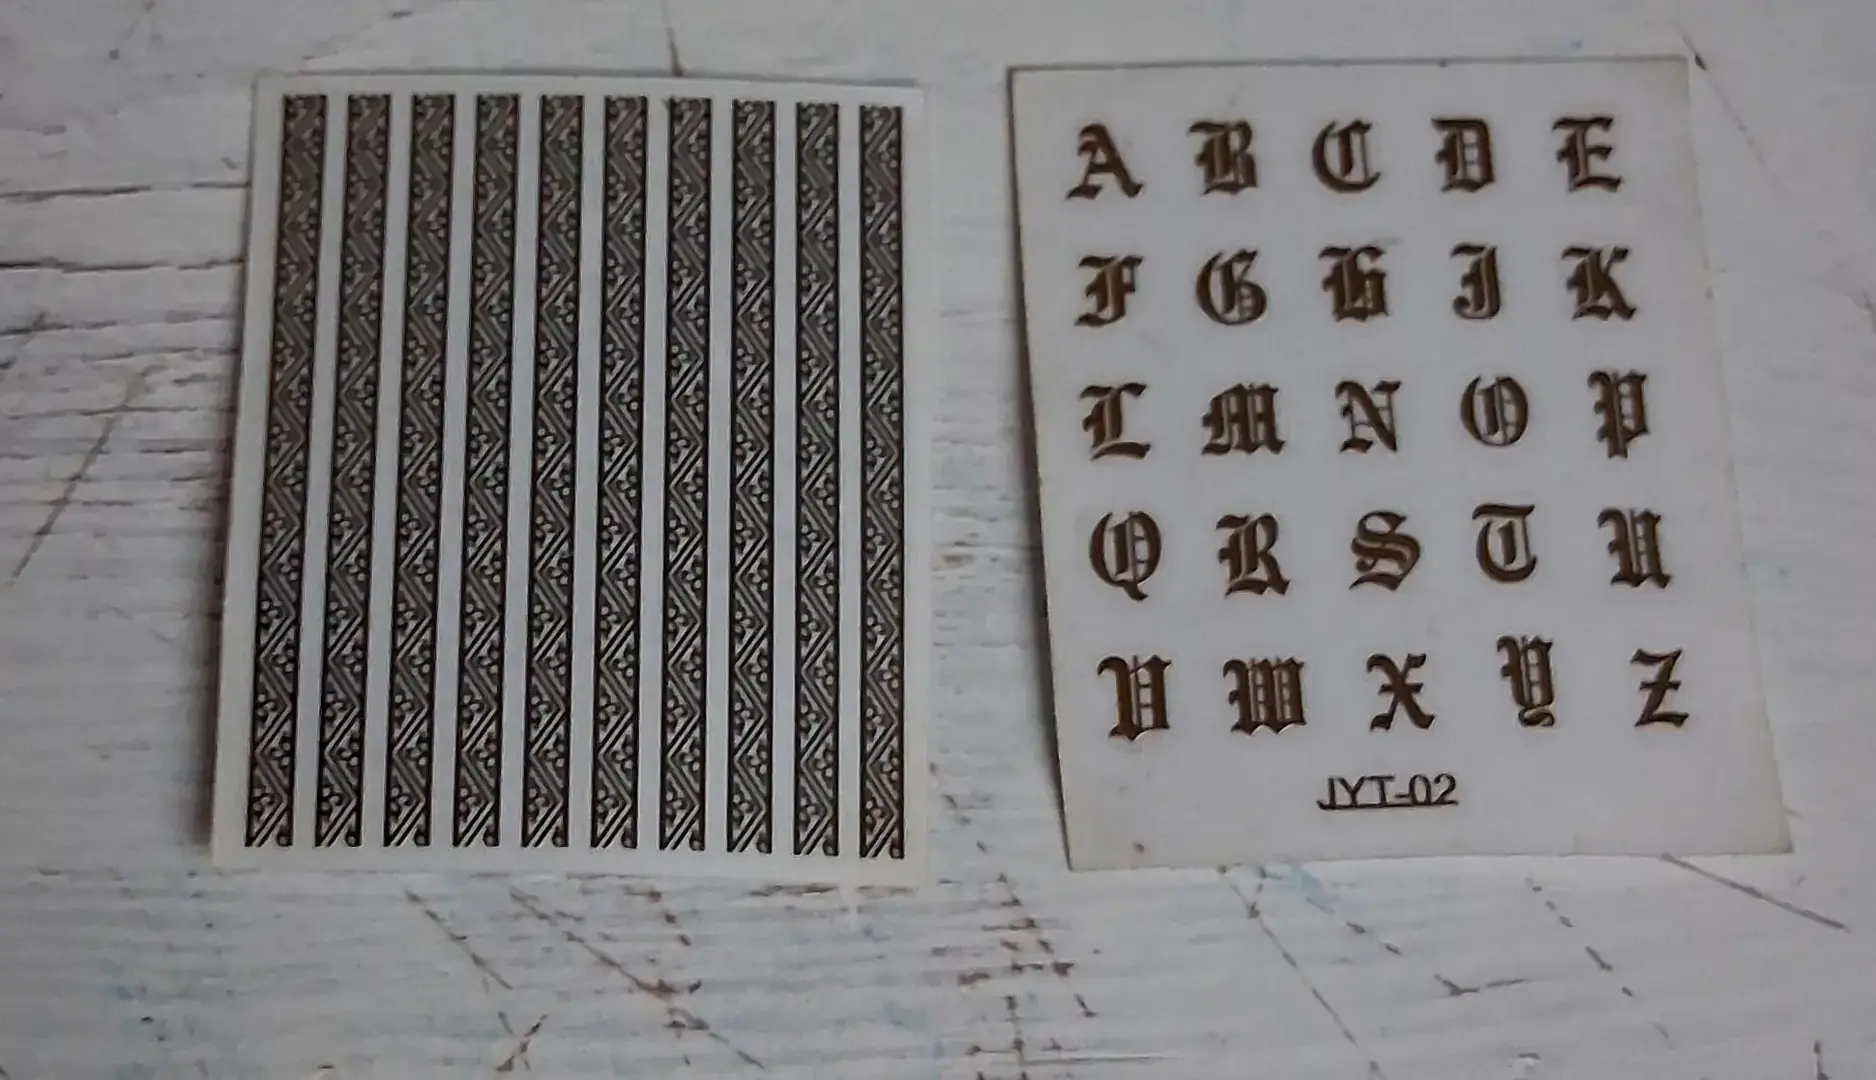 A B C D E
F G H I K
L M N O P
Q R S T U
V W X Y Z
JYT-02